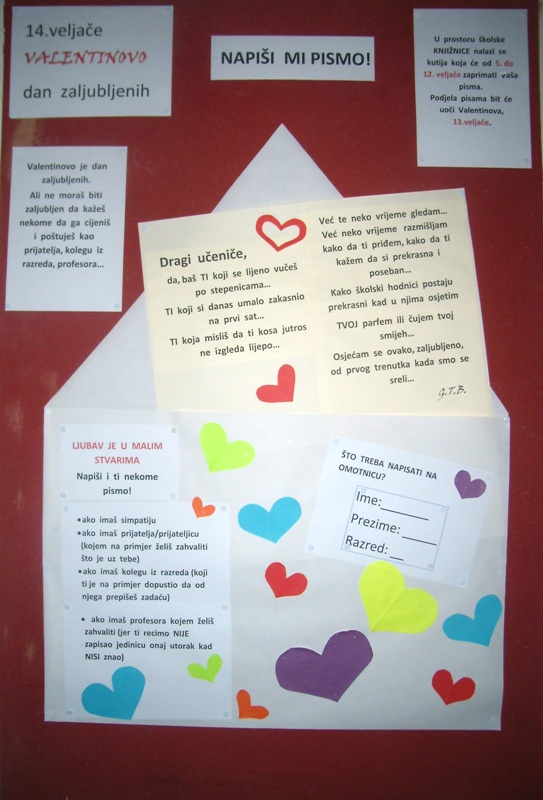 14.veljače
VALENTINOVO
dan zaljubljenih
NAPIŠI MI PISMO!
U prostoru školske
KNJIŽNICE nalazi se
kutija koja će od 5. do
12. veljače zaprimati vaša
pisma.
Podjela pisama bit će
uoči Valentinova,
13.veljače.
Valentinovo je dan
zaljubljenih.
Ali ne moraš biti
zaljubljen da kažeš
nekome da ga cijeniš
i poštuješ kao
prijatelja, kolegu iz
razreda, profesora...
Dragi učeniče,
da, baš TI koji se lijeno vučeš
po stepenicama...
TI koji si danas umalo zakasnio
na prvi sat...
TI koja misliš da ti kosa jutros
ne izgleda lijepo...
Već te neko vrijeme gledam...
Već neko vrijeme razmišljam
kako da ti priđem, kako da ti
kažem da si prekrasna i
poseban...
Kako školski hodnici postaju
prekrasni kad u njima osjetim
TVOJ parfem ili čujem tvoj
smijeh...
Osjećam se ovako, zaljubljeno,
od prvog trenutka kada smo se
sreli...
G.T.B.
LJUBAV JE U MALIM
STVARIMA
Napiši i ti nekome
pismo!
•ako imaš simpatiju
•ako imaš prijatelja/prijateljicu
(kojem na primjer želiš zahvaliti
što je uz tebe)
•ako imaš kolegu iz razreda (koji
ti je na primjer dopustio da od
njega prepišeš zadaću)
• ako imaš profesora kojem želiš
zahvaliti (jer ti recimo NIJE
zapisao jedinicu onaj utorak kad
NISI znao)
ŠTO TREBA NAPISATI NA
OMOTNICU?
Ime:_______
Prezime:_____
Razred:__